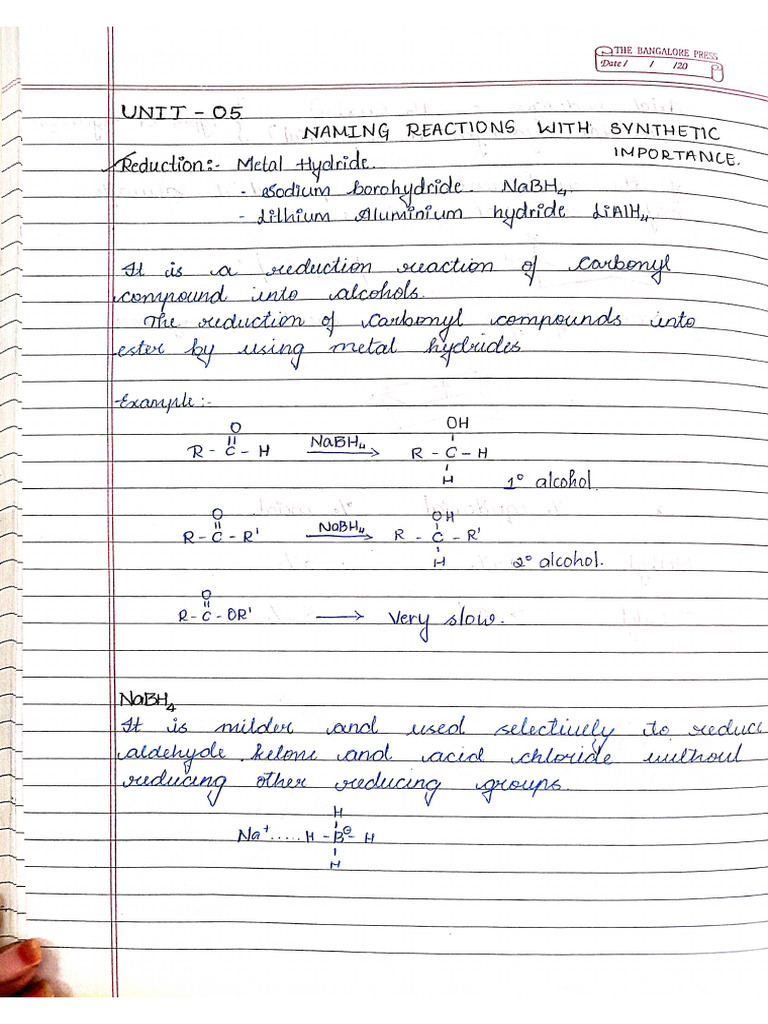 THE BANGALORE PRESS
Date / / /20
UNIT - 05
NAMING REACTIONS WITH SYNTHETIC
IMPORTANCE.
Reduction:- Metal Hydride.
- Sodium borohydride NaBH4
- Lithium Aluminium hydride LiAlH4
It is a reduction reaction of Carbonyl
compound into alcohols.
The reduction of Carbonyl compounds into
ester by using metal hydrides
Example:-
O OH
R - C - H NaBH4 R - C - H
H 1° alcohol
O OH
R - C - R' NaBH4 R - C - R'
H 2° alcohol.
O
R - C - OR' → Very slow.
NaBH4
It is milder and used selectively to reduce
aldehyde ketone and acid chloride without
reducing other reducing groups.
H
Na+ ..... H - B⊖ - H
H